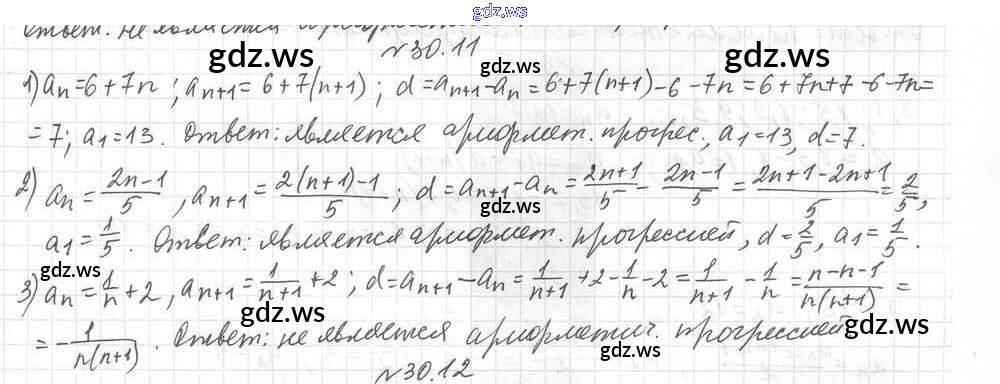 gdz.ws
Ответ: не является
№30.11
gdz.ws gdz.ws
1) aₙ=6+7n; aₙ₊₁=6+7(n+1); d=aₙ₊₁-aₙ=6+7(n+1)-6-7n=6+7n+7-6-7n=
=7; a₁=13. Ответ: является арифмет. прогрес., a₁=13, d=7.
gdz.ws gdz.ws
2) aₙ=(2n-1)/5, aₙ₊₁=(2(n+1)-1)/5; d=aₙ₊₁-aₙ=(2n+1)/5-(2n-1)/5=(2n+1-2n+1)/5=2/5,
a₁=1/5. Ответ: является арифмет. прогрессией, d=2/5, a₁=1/5.
gdz.ws gdz.ws
3) aₙ=1/n+2, aₙ₊₁=1/(n+1)+2; d=aₙ₊₁-aₙ=1/(n+1)+2-1/n-2=1/(n+1)-1/n=(n-n-1)/(n(n+1))=
=-1/(n(n+1)). Ответ: не является арифметич. прогрессией.
gdz.ws gdz.ws
№30.12